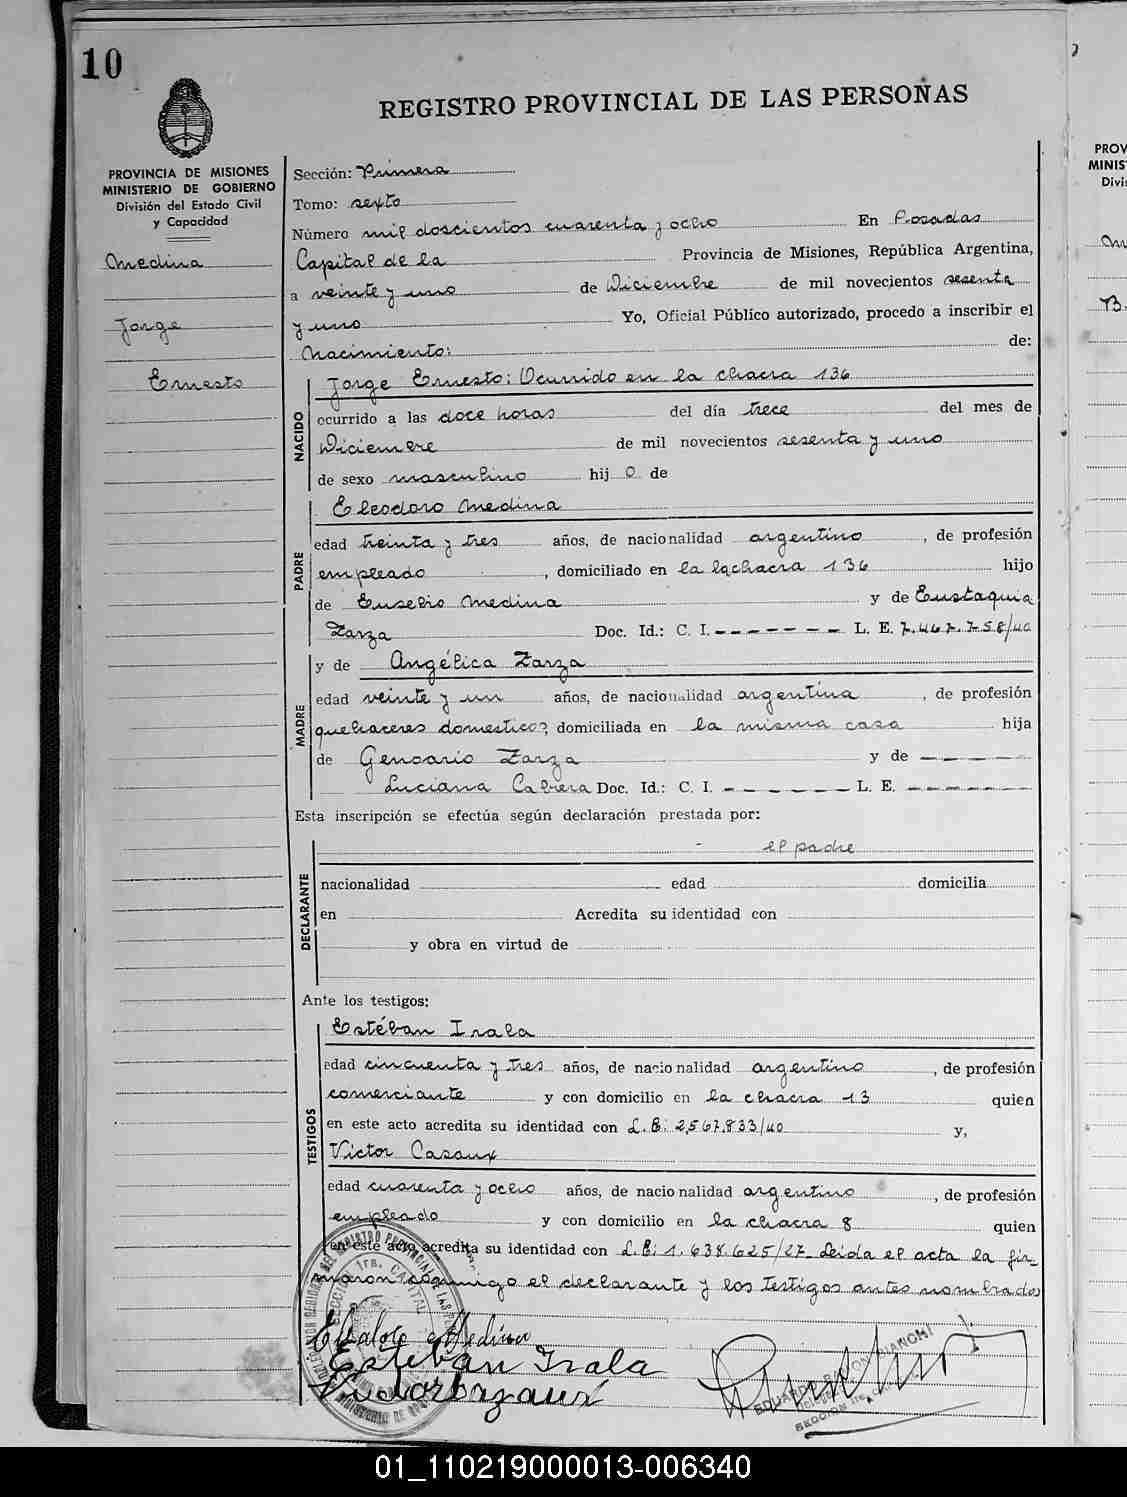 10
REGISTRO PROVINCIAL DE LAS PERSONAS
PROVINCIA DE MISIONES
MINISTERIO DE GOBIERNO
División del Estado Civil
y Capacidad
Medina
Jorge
Ernesto
Sección: Primera
Tomo: sexto
Número mil doscientos cuarenta y ocho En Posadas
Capital de la Provincia de Misiones, República Argentina,
a veinte y uno de Diciembre de mil novecientos sesenta
y uno Yo, Oficial Público autorizado, procedo a inscribir el
Nacimiento: de:
NACIDO
Jorge Ernesto: Ocurrido en la chacra 136
ocurrido a las doce horas del día trece del mes de
Diciembre de mil novecientos sesenta y uno
de sexo masculino hij o de
PADRE
Eleodoro Medina
edad treinta y tres años, de nacionalidad argentino, de profesión
empleado, domiciliado en la chacra 136 hijo
de Eusebio Medina y de Eustaquia
Zarza Doc. Id.: C. I. - - - - - - - L. E. 7.467.758/40
MADRE
y de Angélica Zarza
edad veinte y un años, de nacionalidad argentina, de profesión
quehaceres domesticos, domiciliada en la misma casa hija
de Genoario Zarza y de - - - - - -
Luciana Cabrera Doc. Id.: C. I. - - - - - - - L. E. - - - - - - -
Esta inscripción se efectúa según declaración prestada por:
DECLARANTE
el padre
nacionalidad edad domicilia
en Acredita su identidad con
y obra en virtud de
Ante los testigos:
TESTIGOS
Estéban Irala
edad cincuenta y tres años, de nacionalidad argentino, de profesión
comerciante y con domicilio en la chacra 13 quien
en este acto acredita su identidad con L.E: 2,567.833/40 y,
Victor Casaux
edad cuarenta y ocho años, de nacionalidad argentino, de profesión
empleado y con domicilio en la chacra 8 quien
en este acto acredita su identidad con L.E: 1.638.625/27_ Leida el acta la fir-
maron conmigo el declarante y los testigos antes nombrados
Medina
Esteban Irala
01_110219000013-006340